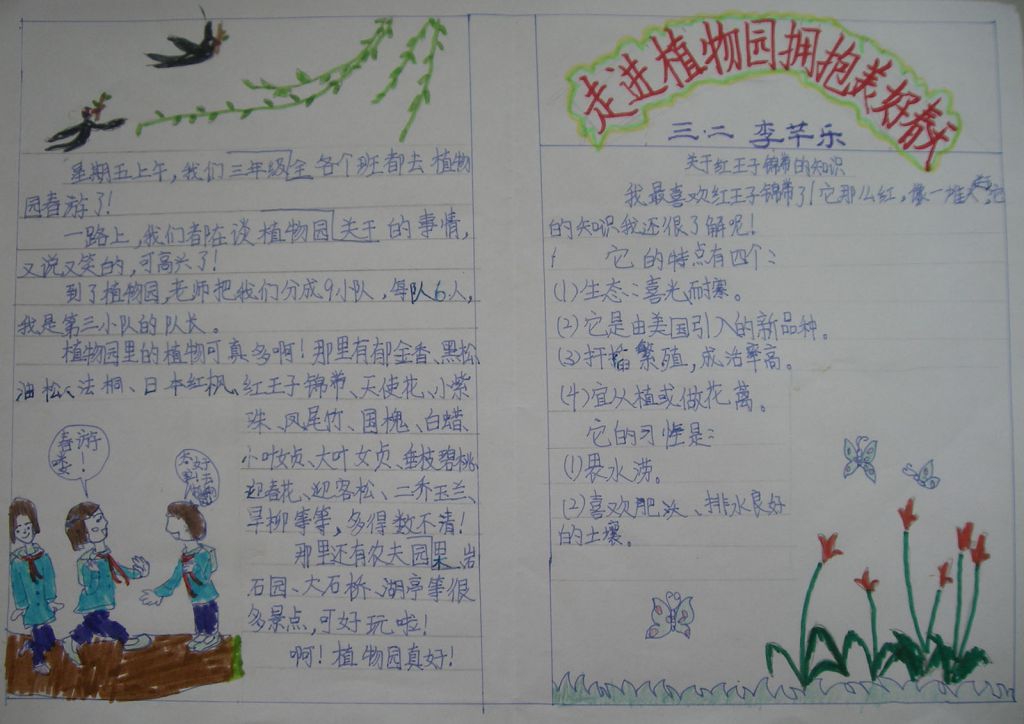 星期五上午，我们三年级全各个班都去植物
园春游了！
一路上，我们都在谈植物园关于的事情，
又说又笑的，可高兴了！
到了植物园，老师把我们分成9小队，每队6人，
我是第三小队的队长。
植物园里的植物可真多啊！那里有郁金香、黑松、
油松、法桐、日本红枫、红王子锦带、天使花、小紫
珠、凤尾竹、国槐、白蜡、
小叶女贞、大叶女贞、垂枝碧桃、
迎春花、迎客松、二乔玉兰、
旱柳等等，多得数不清！
那里还有农夫园果、岩
石园、大石桥、湖亭等很
多景点，可好玩啦！
啊！植物园真好！
春游
喽！
走进植物园拥抱美好春天
三.二 李芊乐
关于红王子锦带的知识
我最喜欢红王子锦带了！它那么红，像一堆火，它
的知识我还很了解呢！
它的特点有四个：
(1)生态：喜光，耐寒。
(2)它是由美国引入的新品种。
(3)扦插繁殖，成活率高。
(4)宜从植或做花篱。
它的习性是：
(1)畏水涝。
(2)喜欢肥沃、排水良好
的土壤。